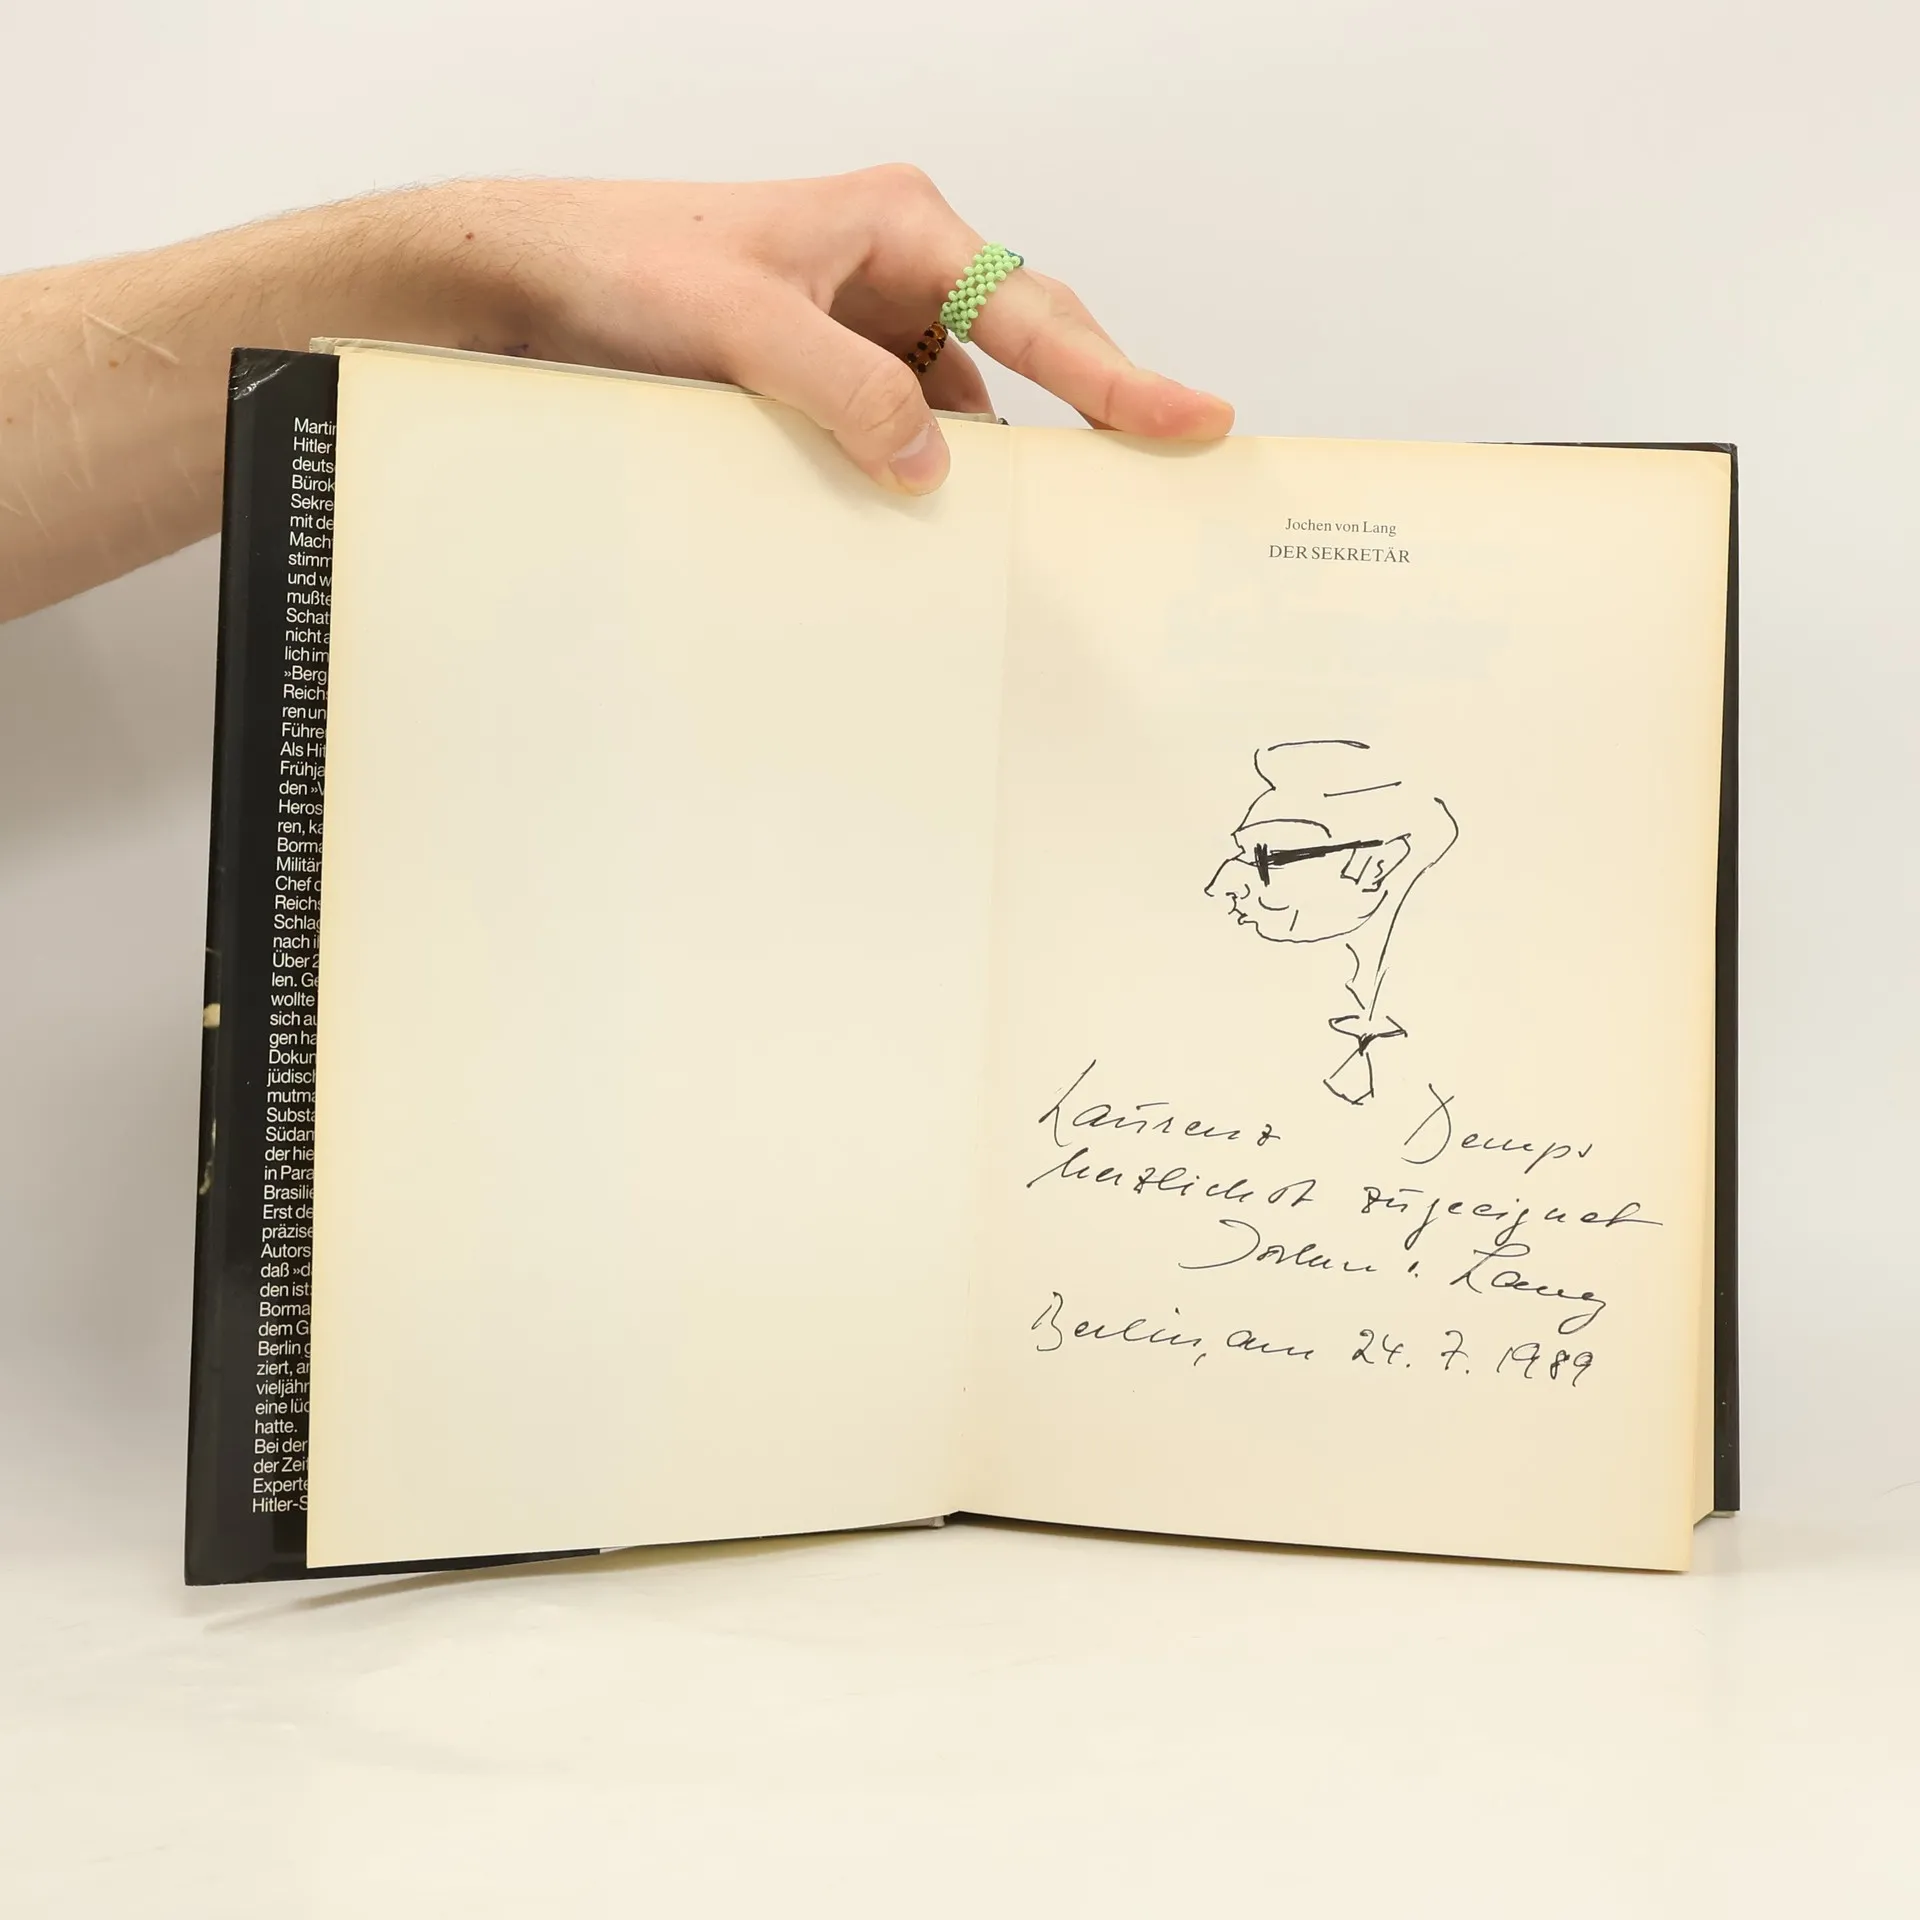 Martin
Hitler
deuts
Bürok
Sekre
mit de
Mach
stimm
und w
mußte
Schat
nicht a
lich im
»Berg
Reichs
ren un
Führe
Als Hit
Frühja
den »V
Heros
ren, ka
Borma
Militär
Chef d
Reichs
Schlag
nach i
Über 2
len. Ge
wollte
sich au
gen ha
Dokun
jüdisch
mutma
Substa
Südan
der hie
in Para
Brasilie
Erst de
präzise
Autors
daß »d
den ist:
Borma
dem G
Berlin g
ziert, an
vieljähr
eine lüc
hatte.
Bei der
der Zeit
Experte
Hitler-S
Jochen von Lang
DER SEKRETÄR
Laurenz Demps
herzlichst zugeeignet
Jochen v. Lang
Berlin, am 24. 7. 1989